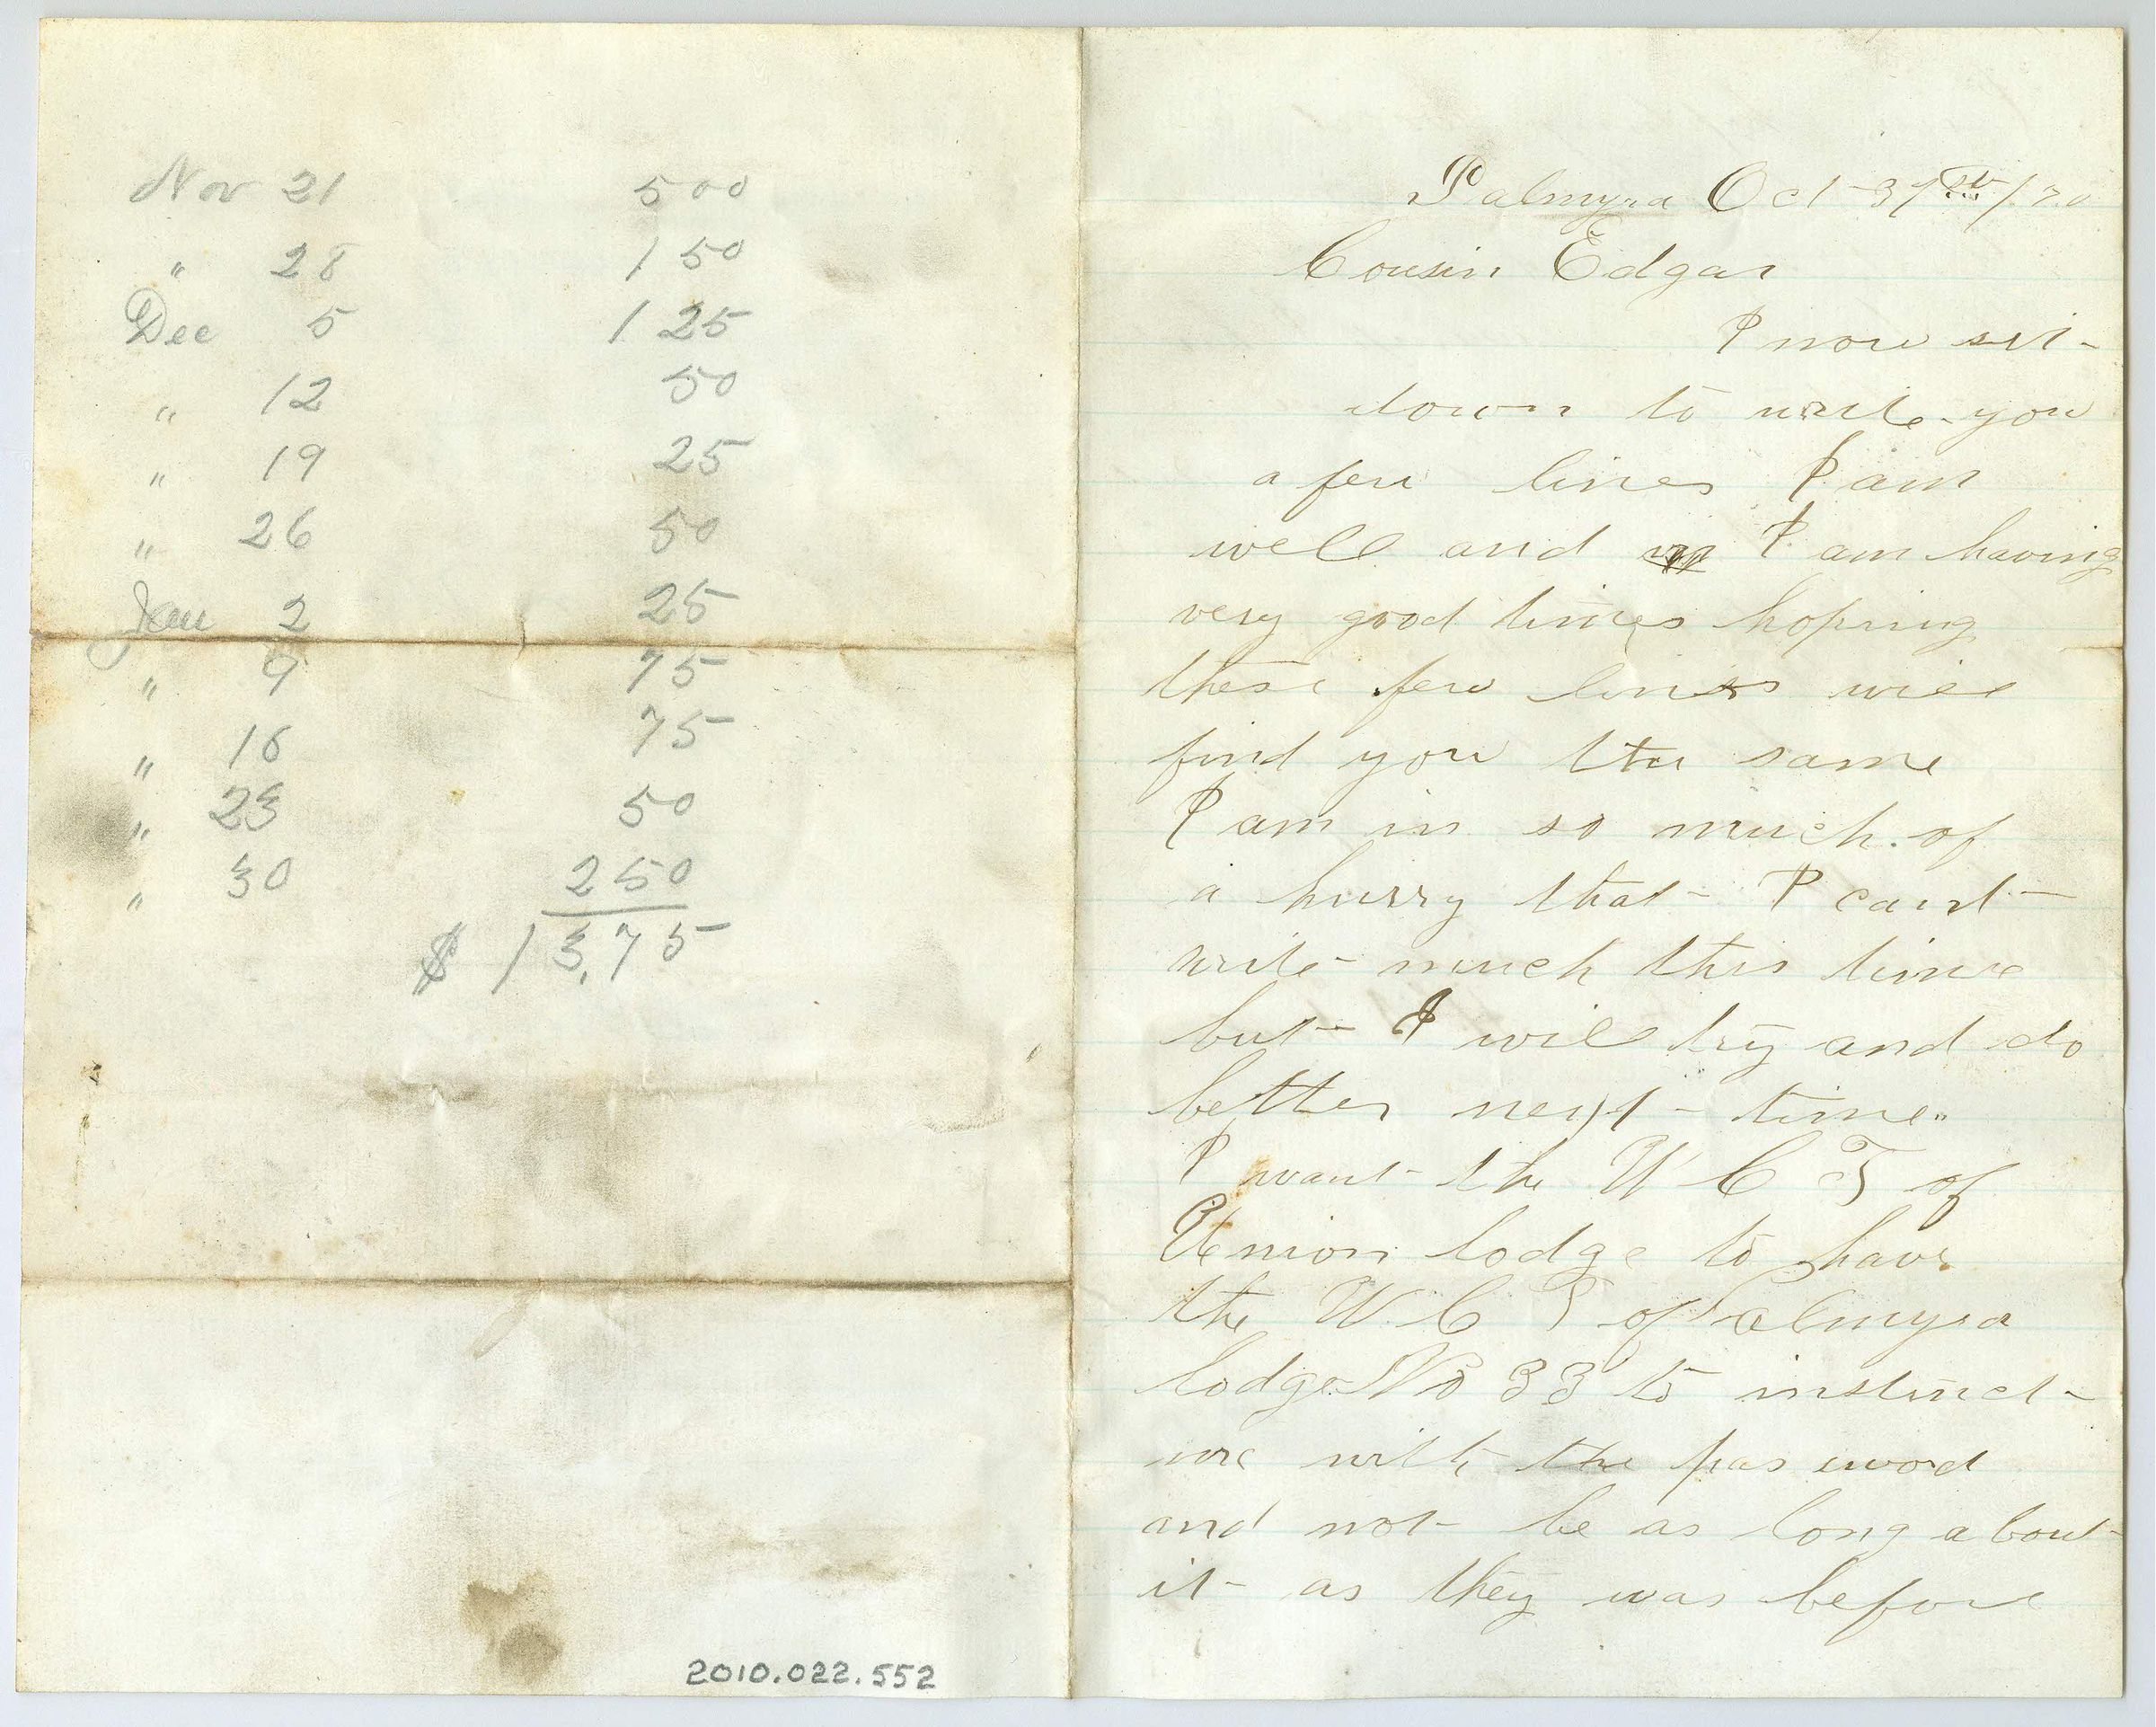 Nov 21 500
" 28 1 50
Dec 5 1 25
" 12 50
" 19 25
" 26 50
Jan 2 25
" 9 75
" 16 75
" 23 50
" 30 250
$ 13,75
2010.022.552
Palmyra Oct 31st /70
Cousin Edgar
I now sit
down to write you
a few lines I am
well and I am having
very good times hoping
these few lines will
find you the same
I am in so much of
a hurry that I cant
write much this time
but I will try and do
better next time.
I want the W C T of
Union lodge to have
the W. C T of Palmyra
lodge No 33 to instruct
me with the pas word
and not be as long about
it as they was before